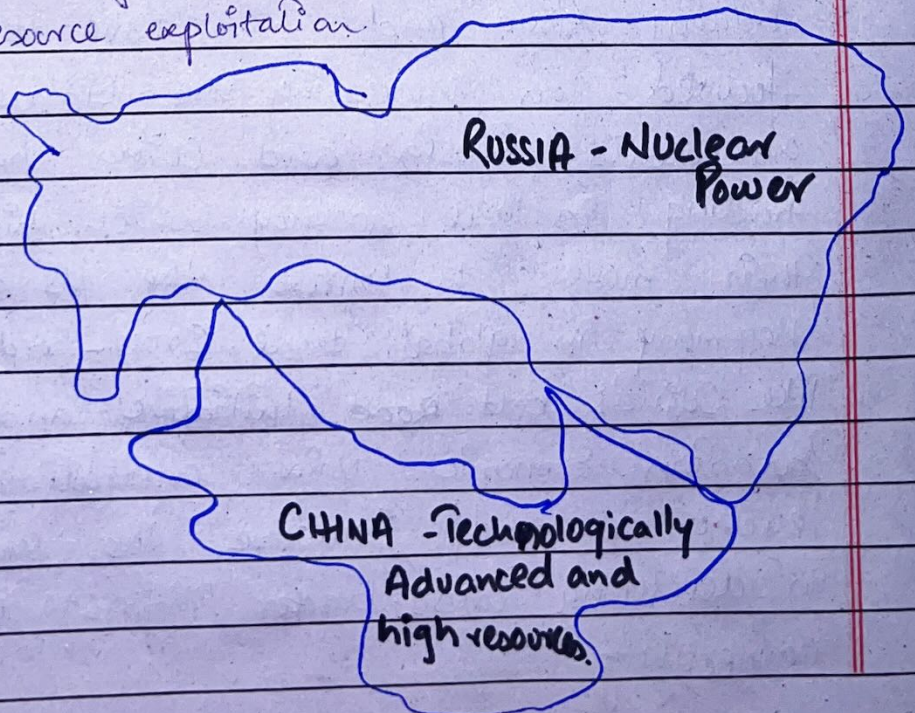 source exploitation
RUSSIA - Nuclear
Power
CHINA - Technologically
Advanced and
high resources.